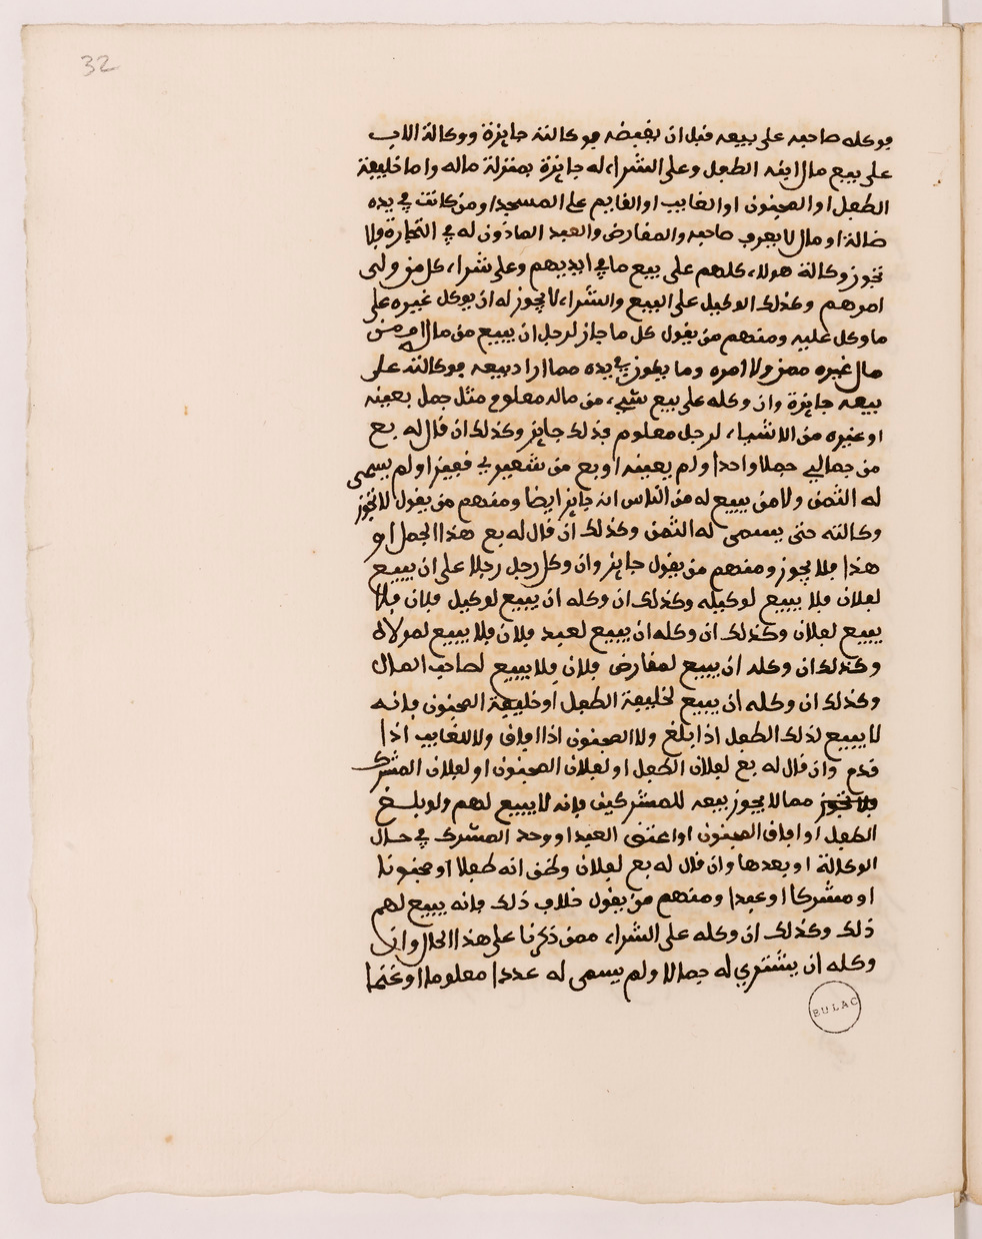 32
فوكله صاحبه على بيعه قبل ان يقبضه فوكالته جايزة ووكالة الاب
على بيع مال ابنه الطفل وعلى الشراء له جايزة بمنزلة ماله واما خليفة
الطفل او المجنون او الغايب او القايم على المسجد او من كانت في يده
ضالة او مال لا يعرف صاحبه والمقارض والعبد الماذون له في التجارة فلا
تجوز وكالة هولاء كلهم على بيع ما في ايديهم وعلى شراء كل من ولى
امرهم وكذلك الوكيل على البيع والشراء لا يجوز له ان يوكل غيره على
ما وكل عليه ومنهم من يقول كل ما جاز لرجل ان يبيع من ماله او من
مال غيره ممن ولا امره وما يكون في يده مما اراد بيعه فوكالته على
بيعه جايزة وان وكله على بيع شيء من ماله معلوم مثل جمل بعينه
او غيره من الاشياء لرجل معلوم فذلك جايز وكذلك ان قال له بع
من جمالي جملا واحدا ولم يعينه او بع من شعيري قفيزا ولم يسمى
له الثمن ولا من يبيع له من الناس انه جايز ايضا ومنهم من يقول لا تجوز
وكالته حتى يسمى له الثمن وكذلك ان قال له بع هذا الجمل او
هذا فلا يجوز ومنهم من يقول جايز وان وكل رجل رجلا على ان يبيع
لفلان فلا يبيع لوكيله وكذلك ان وكله ان يبيع لوكيل فلان فلا
يبيع لفلان وكذلك ان وكله ان يبيع لعبد فلان فلا يبيع لمولاه
وكذلك ان وكله ان يبيع لمقارض فلان فلا يبيع لصاحب المال
وكذلك ان وكله ان يبيع لخليفة الطفل او خليفة المجنون فانه
لا يبيع لذلك الطفل اذا بلغ ولا المجنون اذا افاق ولا للغايب اذا
قدم وان قال له بع لفلان الطفل او لفلان المجنون او لفلان المشرك
مما لا يجوز بيعه للمشركين فانه لا يبيع لهم ولو بلغ
الطفل او افاق المجنون او اعتق العبد او وحد المشرك في حال
الوكالة او بعدها وان قال له بع لفلان وظن انه طفلا او مجنونا
او مشركا او عبدا ومنهم من يقول خلاف ذلك فانه يبيع لهم
ذلك وكذلك ان وكله على الشراء ممن ذكرنا على هذا الحال وان
وكله ان يشتري له جمالا ولم يسمى له عددا معلوما او غنما
BULAC